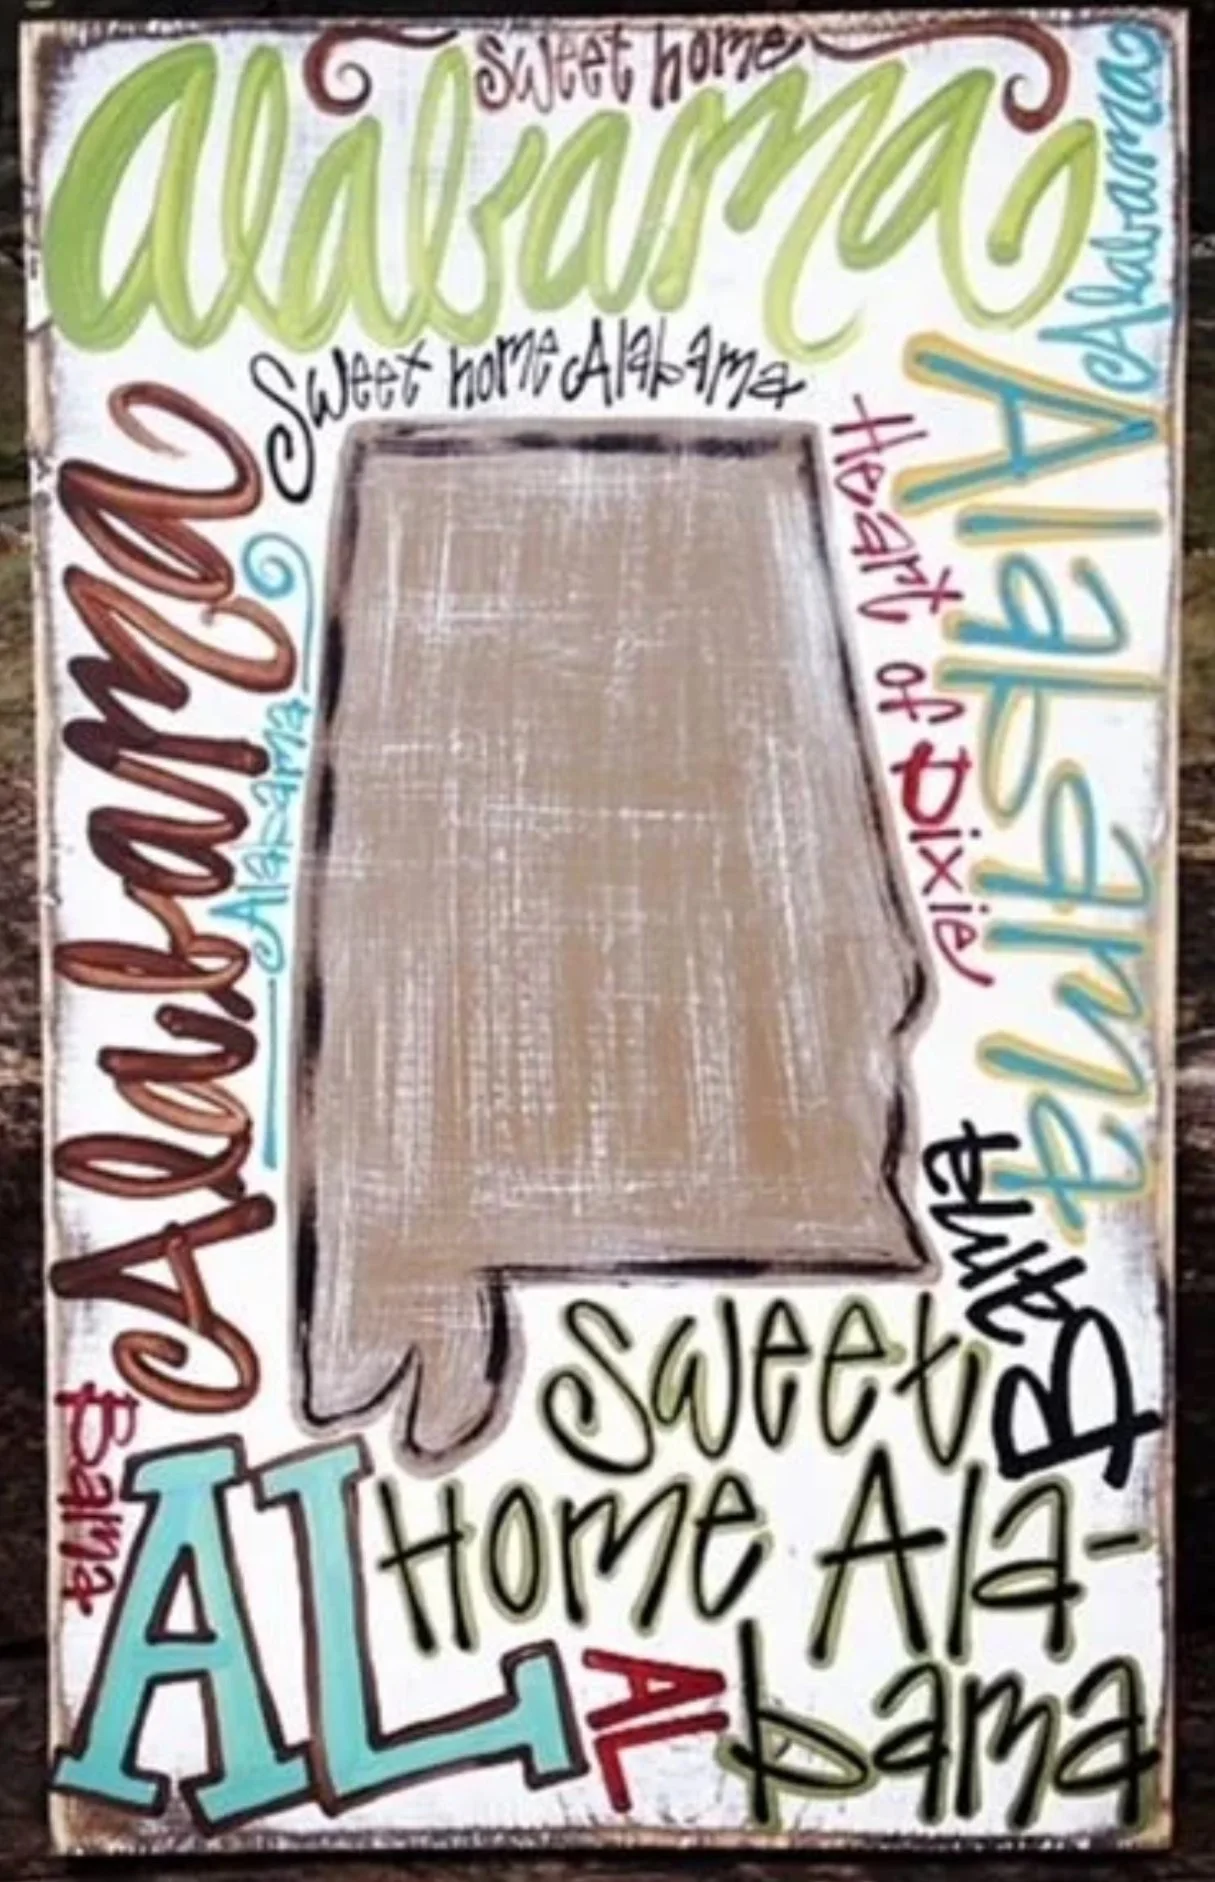 Sweet home
Alabama
Alabama
Sweet home Alabama
Alabama
Alabama
Heart of Dixie
Alabama
Bama
Bama
Sweet
Home Ala-
bama
AL
AL